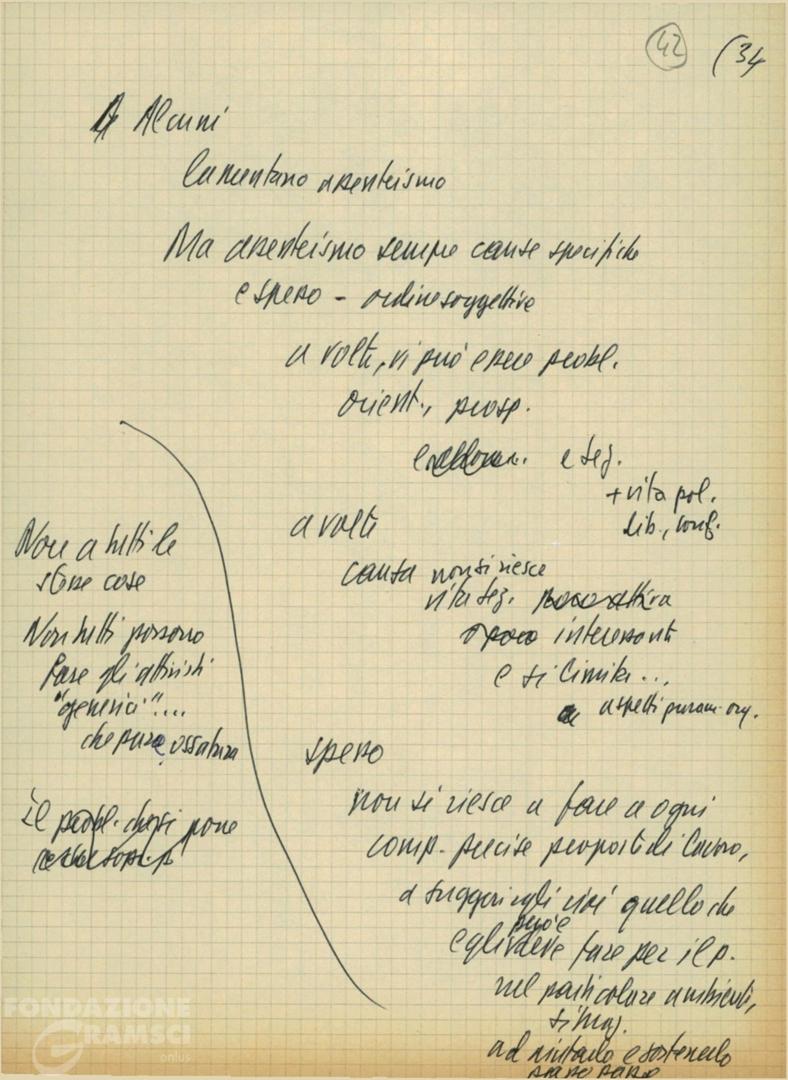 42 (34
A Alcuni
lamentano assenteismo
Ma assenteismo sempre cause specifiche
e spesso - ordine soggettivo
a volte, vi può essere probl.
orient., prosp.
e seg.
+ vita pol.
dib., conf.
a volte
causa non si riesce
vita sez. poco attiva
o poco interessante
e si limita ...
a aspetti puram. org.
spesso
non si riesce a fare a ogni
comp. precise proposte di lavoro,
a suggerirgli cioè quello che
può e
egli deve fare per il p.
nel particolare ambiente,
situaz.
ad aiutarlo e sostenerlo
passo passo
Non a tutti le
stesse cose
Non tutti possono
fare gli attivisti
"generici"....
che pure ossatura
Il probl. che si pone
FONDAZIONE
GRAMSCI
onlus